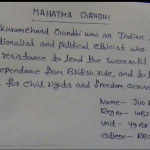 MAHATMA GANDHI
karamchand Gandhi was an Indian
tionalist and political ethicist who
resistance to lead the successful
dependance from British rule, and to
for civil rights and freedom across
Name -
Regno -
Unit -
College -